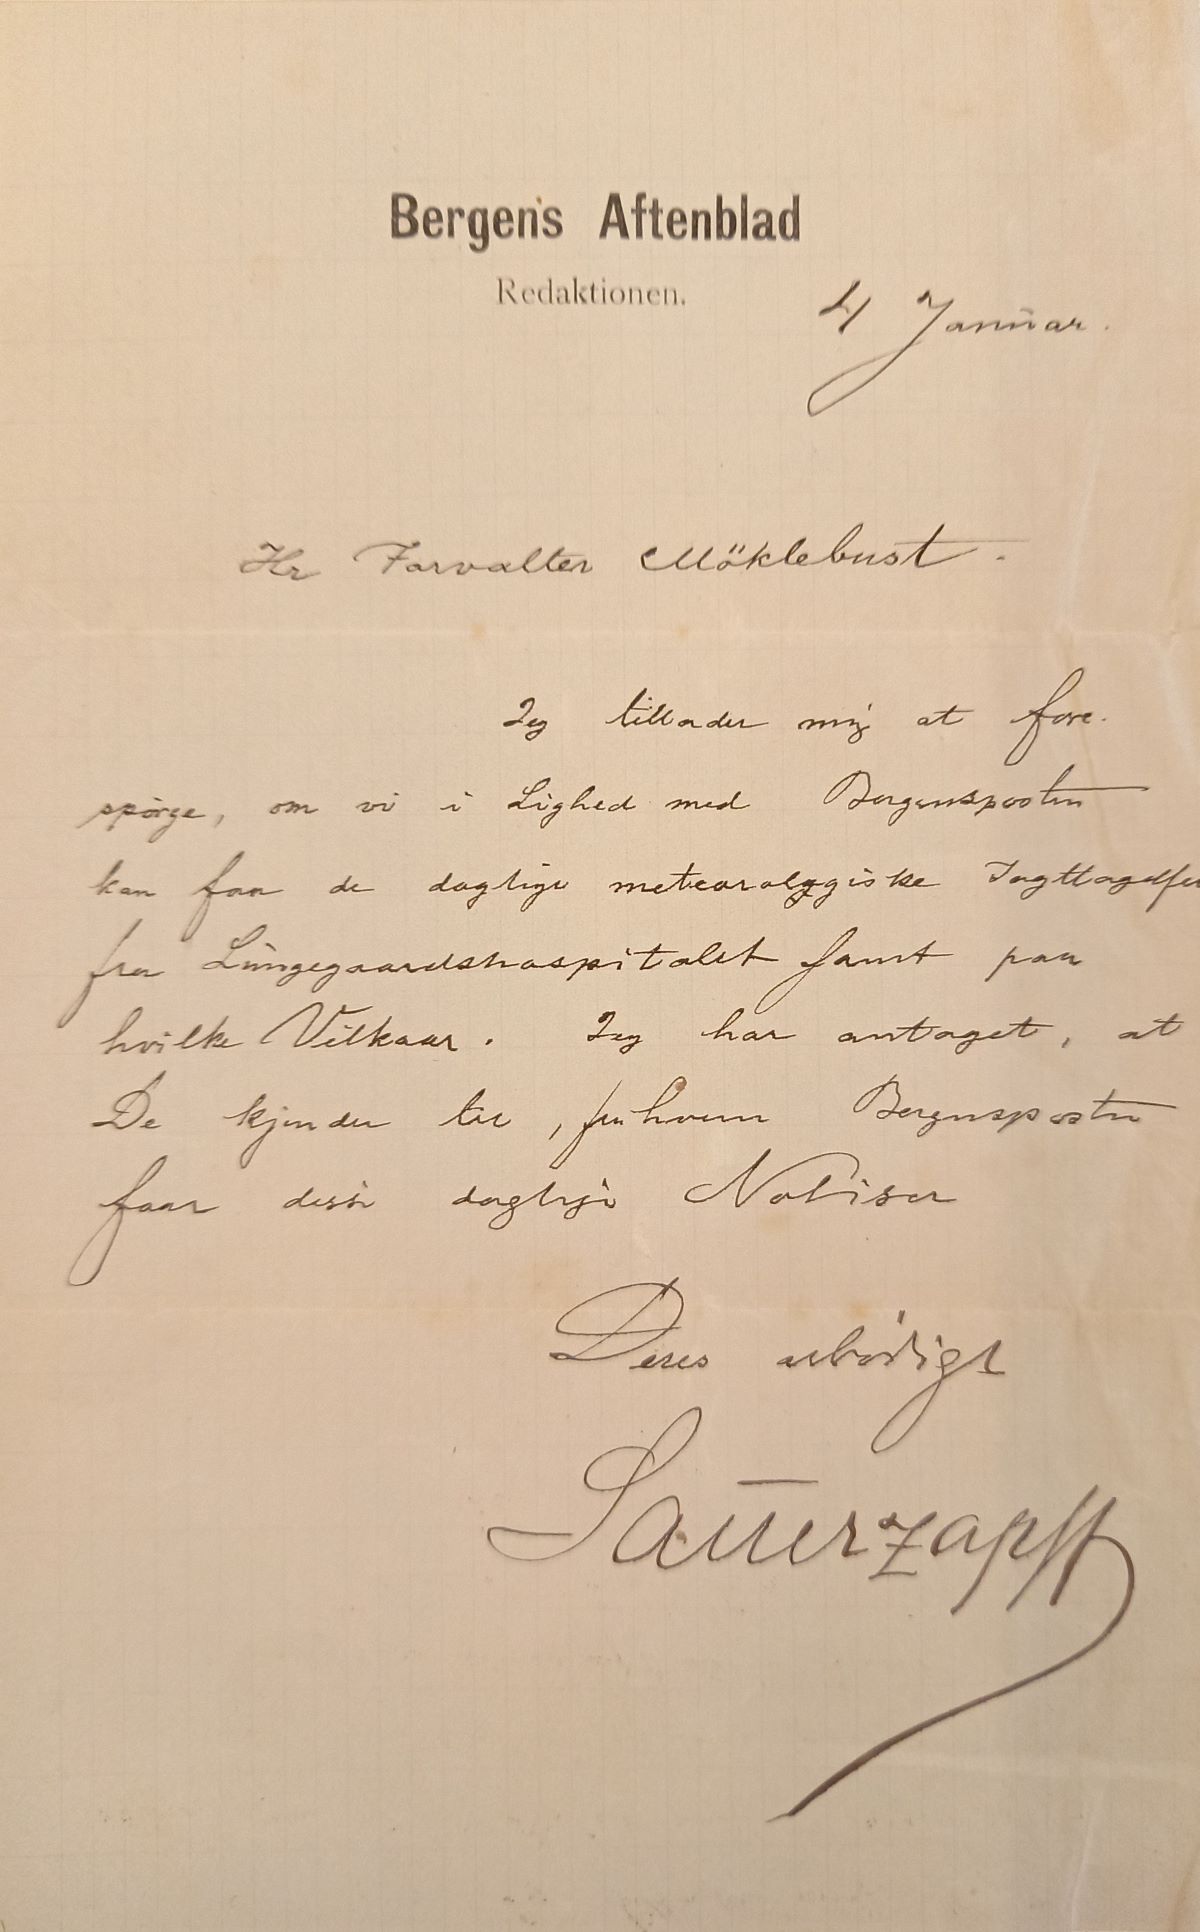 Bergens Aftenblad
Redaktionen.
4 Januar.
Hr Forvalter Möklebust.
Jeg tillader mig at fore-
spørge, om vi i Lighed med Bergensposten
kan faa de daglige meteorologiske
fra Lungegaardshospitalet samt paa
hvilke Vilkaar. Jeg har antaget, at
De kjender til, fra hvem Bergensposten
faar disse daglige Notiser
Deres ærbödigt
Sauerzapff